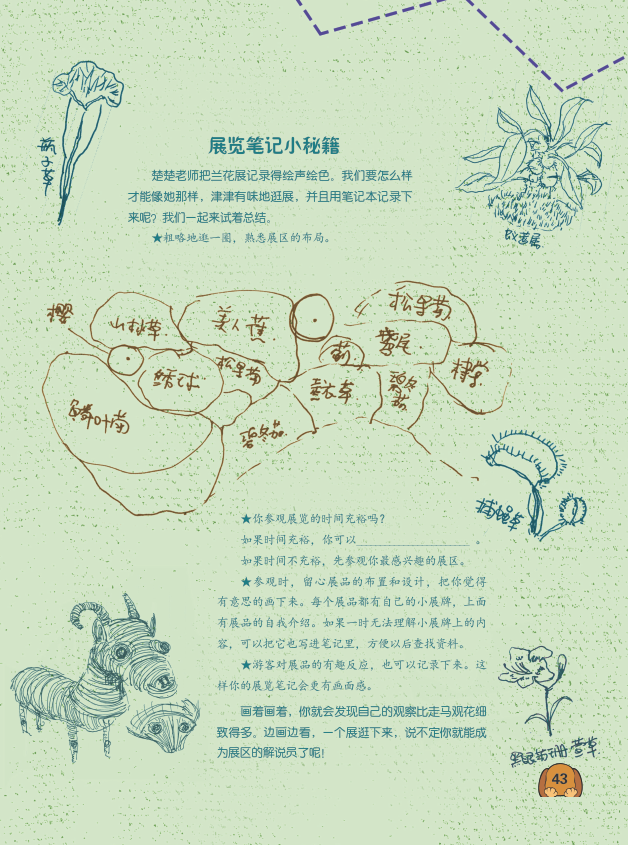 瓶子草
蚁茜属
展览笔记小秘籍
楚楚老师把兰花展记录得绘声绘色。我们要怎么样
才能像她那样，津津有味地逛展，并且用笔记本记录下
来呢？我们一起来试着总结。
★粗略地逛一圈，熟悉展区的布局。
樱
山林草
美人蕉
松果菊
鸢尾
菊
松果菊
绣球
碧冬茄
碧冬茄
捕蝇草
★你参观展览的时间充裕吗？
如果时间充裕，你可以 。
如果时间不充裕，先参观你最感兴趣的展区。
★参观时，留心展品的布置和设计，把你觉得
有意思的画下来。每个展品都有自己的小展牌，上面
有展品的自我介绍。如果一时无法理解小展牌上的内
容，可以把它也写进笔记里，方便以后查找资料。
★游客对展品的有趣反应，也可以记录下来。这
样你的展览笔记会更有画面感。
画着画着，你就会发现自己的观察比走马观花细
致得多。边画边看，一个展逛下来，说不定你就能成
为展区的解说员了呢！
黑眼苏珊 萱草
43